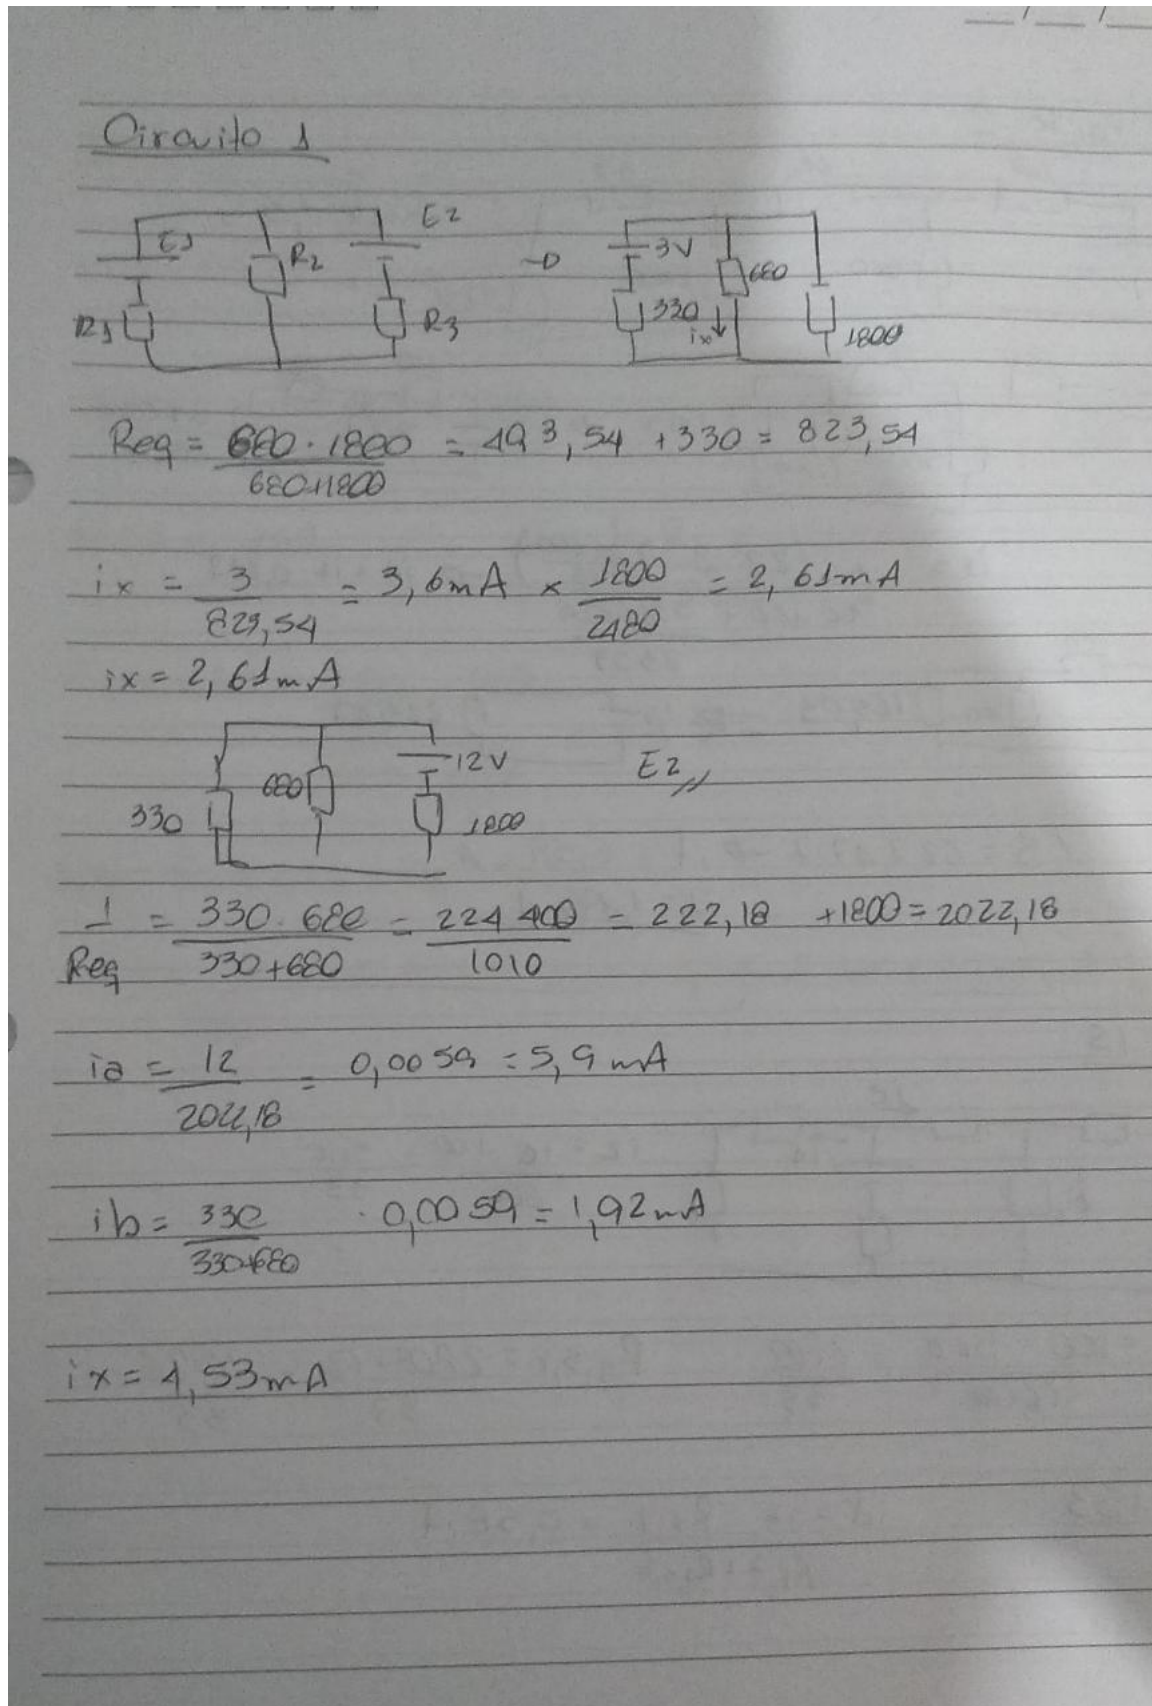 Circuito 1
E1 R2 E2 R1 R3 → 3V 680 330 ix↓ 1800
Req = 680 · 1800 / 680+1800 = 493,54 + 330 = 823,54
ix = 3 / 823,54 = 3,6mA × 1800 / 2480 = 2,61mA
ix = 2,61mA
330 680 12V 1800 E2 //
1 / Req = 330 · 680 / 330+680 = 224 400 / 1010 = 222,18 +1800 = 2022,18
ia = 12 / 2022,18 = 0,0059 = 5,9 mA
ib = 330 / 330+680 · 0,0059 = 1,92mA
ix = 4,53mA